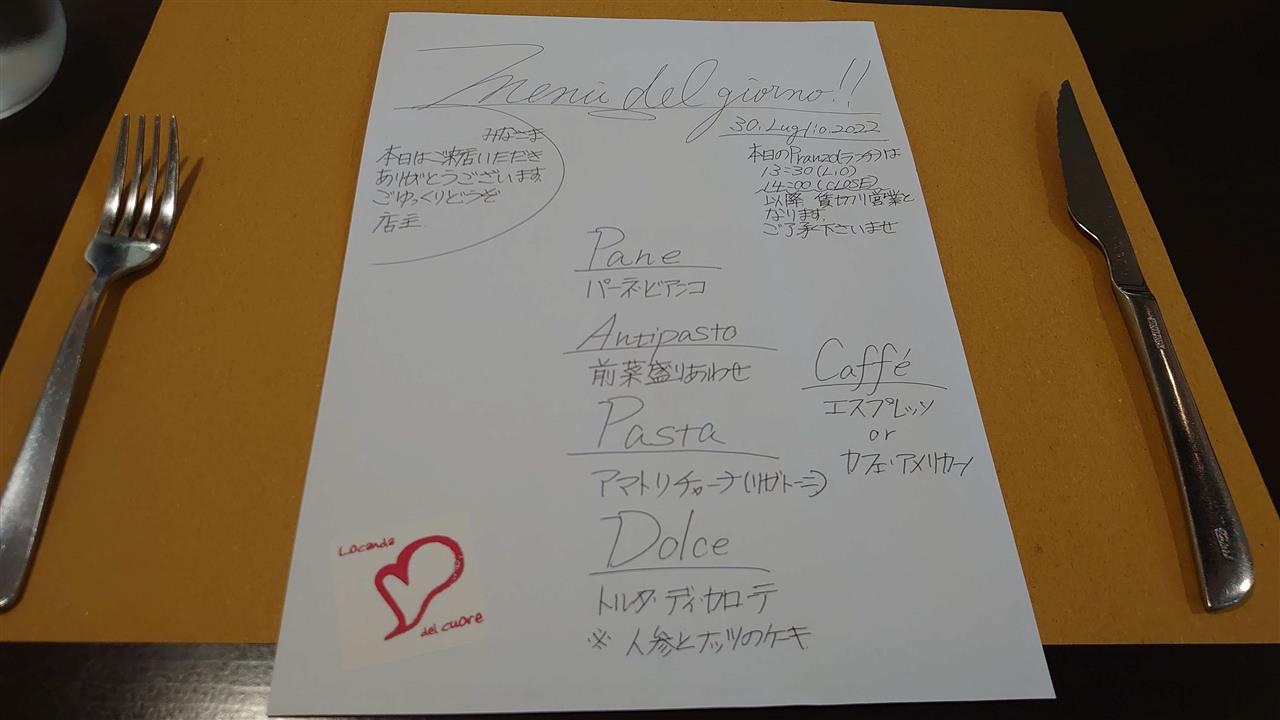 Menù del giorno!!
30.Luglio.2022
みなさま
本日はご来店いただき
ありがとうございます
ごゆっくりどうぞ
店主.
本日のPranzo(ランチ)は
13:30(L.O)
14:00(CLOSE)
以降 貸切り営業と
なります.
ご了承下さいませ
Pane
パーネ・ビアンコ
Antipasto
前菜盛りあわせ
Pasta
アマトリチャーナ(リガトーニ)
Caffé
エスプレッソ
or
カフェ・アメリカーノ
Dolce
トルタ・ディ・カローテ
※ 人参とナッツのケーキ
Locanda
del cuore